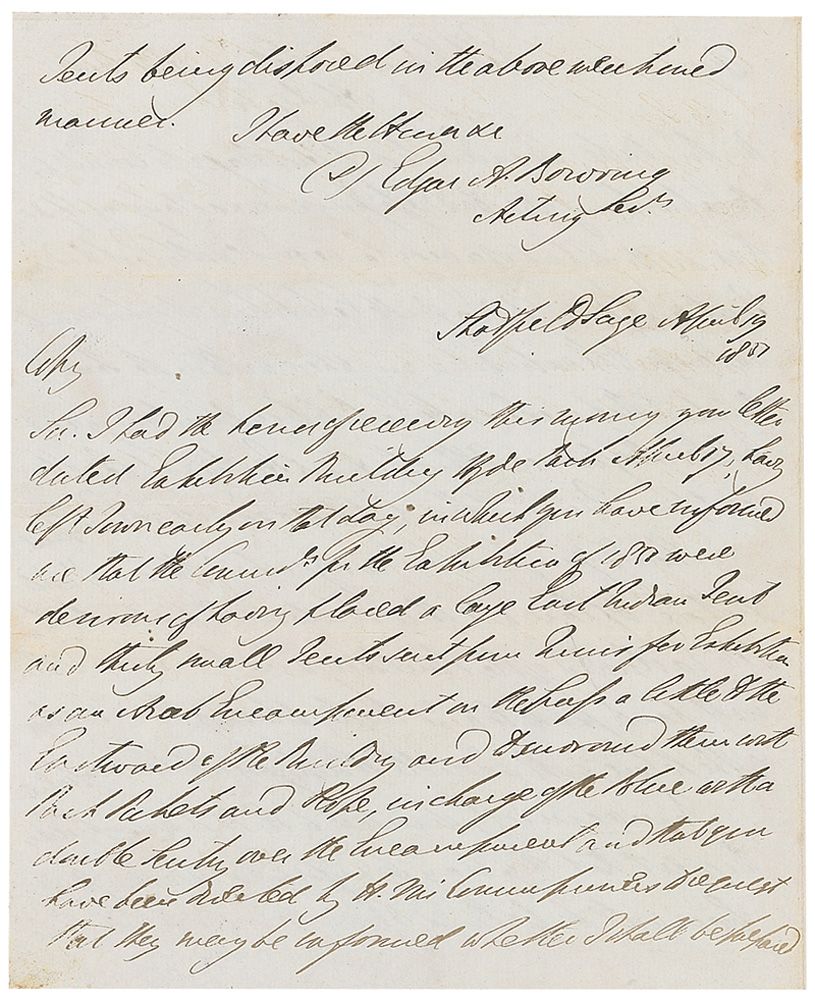 Tents being disposed in the above mentioned
manner. I have the Honor &c
(S) Edgar A. Bowring
Acting Secy.
Stratfield Saye April 19
1851
Copy
Sir. I had the honor of receiving this morning your letter
dated Exhibition Building Hyde Park April 17, having
left Town early on that day, in which you have informed
me that the Commrs. for the Exhibition of 1851 were
desirous of having placed a large East Indian Tent
and thirty small Tents sent from Tunis for Exhibition
as an Arab Encampment on the Grass a little to the
Eastward of the Building and to surround them with
Park Pickets and Rope, in charge of the Police with a
double Sentry over the Encampment and that you
have been directed by H. M's Commissioners to request
that they may be informed whether I shall be prepared